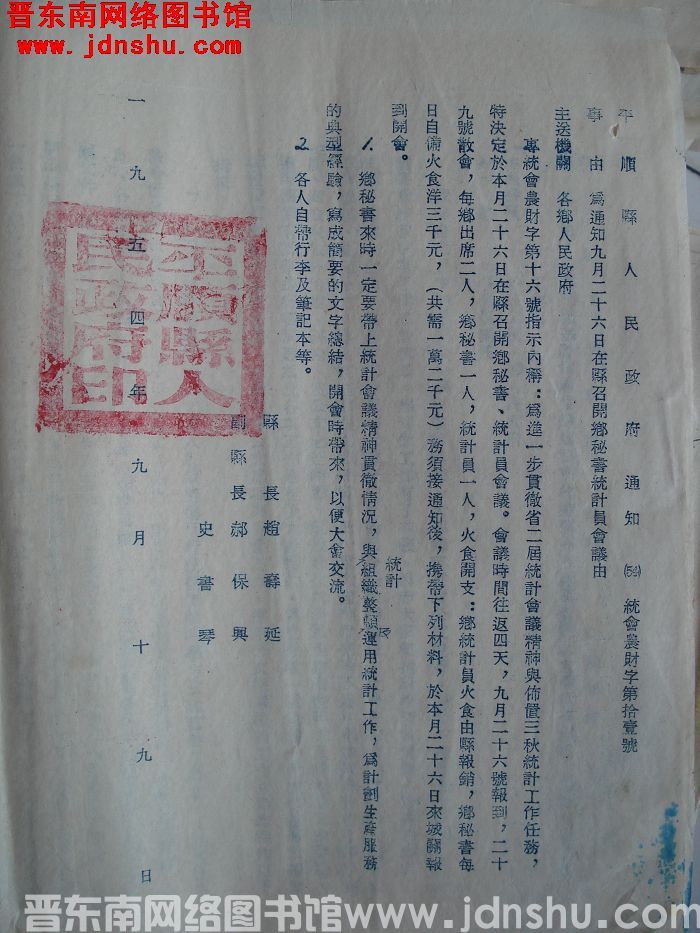 晋东南网络图书馆
www.jdnshu.com
平順縣人民政府通知 (54) 統會農財字第拾壹號
事由 為通知九月二十六日在縣召開鄉秘書統計員會議由
主送機關 各鄉人民政府
專統會農財字第十六號指示內稱：為進一步貫徹省二屆統計會議精神與佈置三秋統計工作任務，
特決定於本月二十六日在縣召開鄉秘書、統計員會議。會議時間往返四天，九月二十六號報到，二十
九號散會，每鄉出席二人，鄉秘書一人，統計員一人，火食開支：鄉統計員火食由縣報銷，鄉秘書每
日自備火食洋三千元，（共需一萬二千元）務須接通知後，携帶下列材料，於本月二十六日來城關報
到開會。
1. 鄉秘書來時一定要帶上統計會議精神貫徹情況，與組織整頓運用統計工作，為計劃生產服務
統計
的典型經驗，寫成簡要的文字總結，開會時帶來，以便大會交流。
2. 各人自帶行李及筆記本等。
縣長 趙壽延
副縣長 郝保興
史書琴
一九五四年九月十九日
平順縣人
民政府印
晋东南网络图书馆www.jdnshu.com